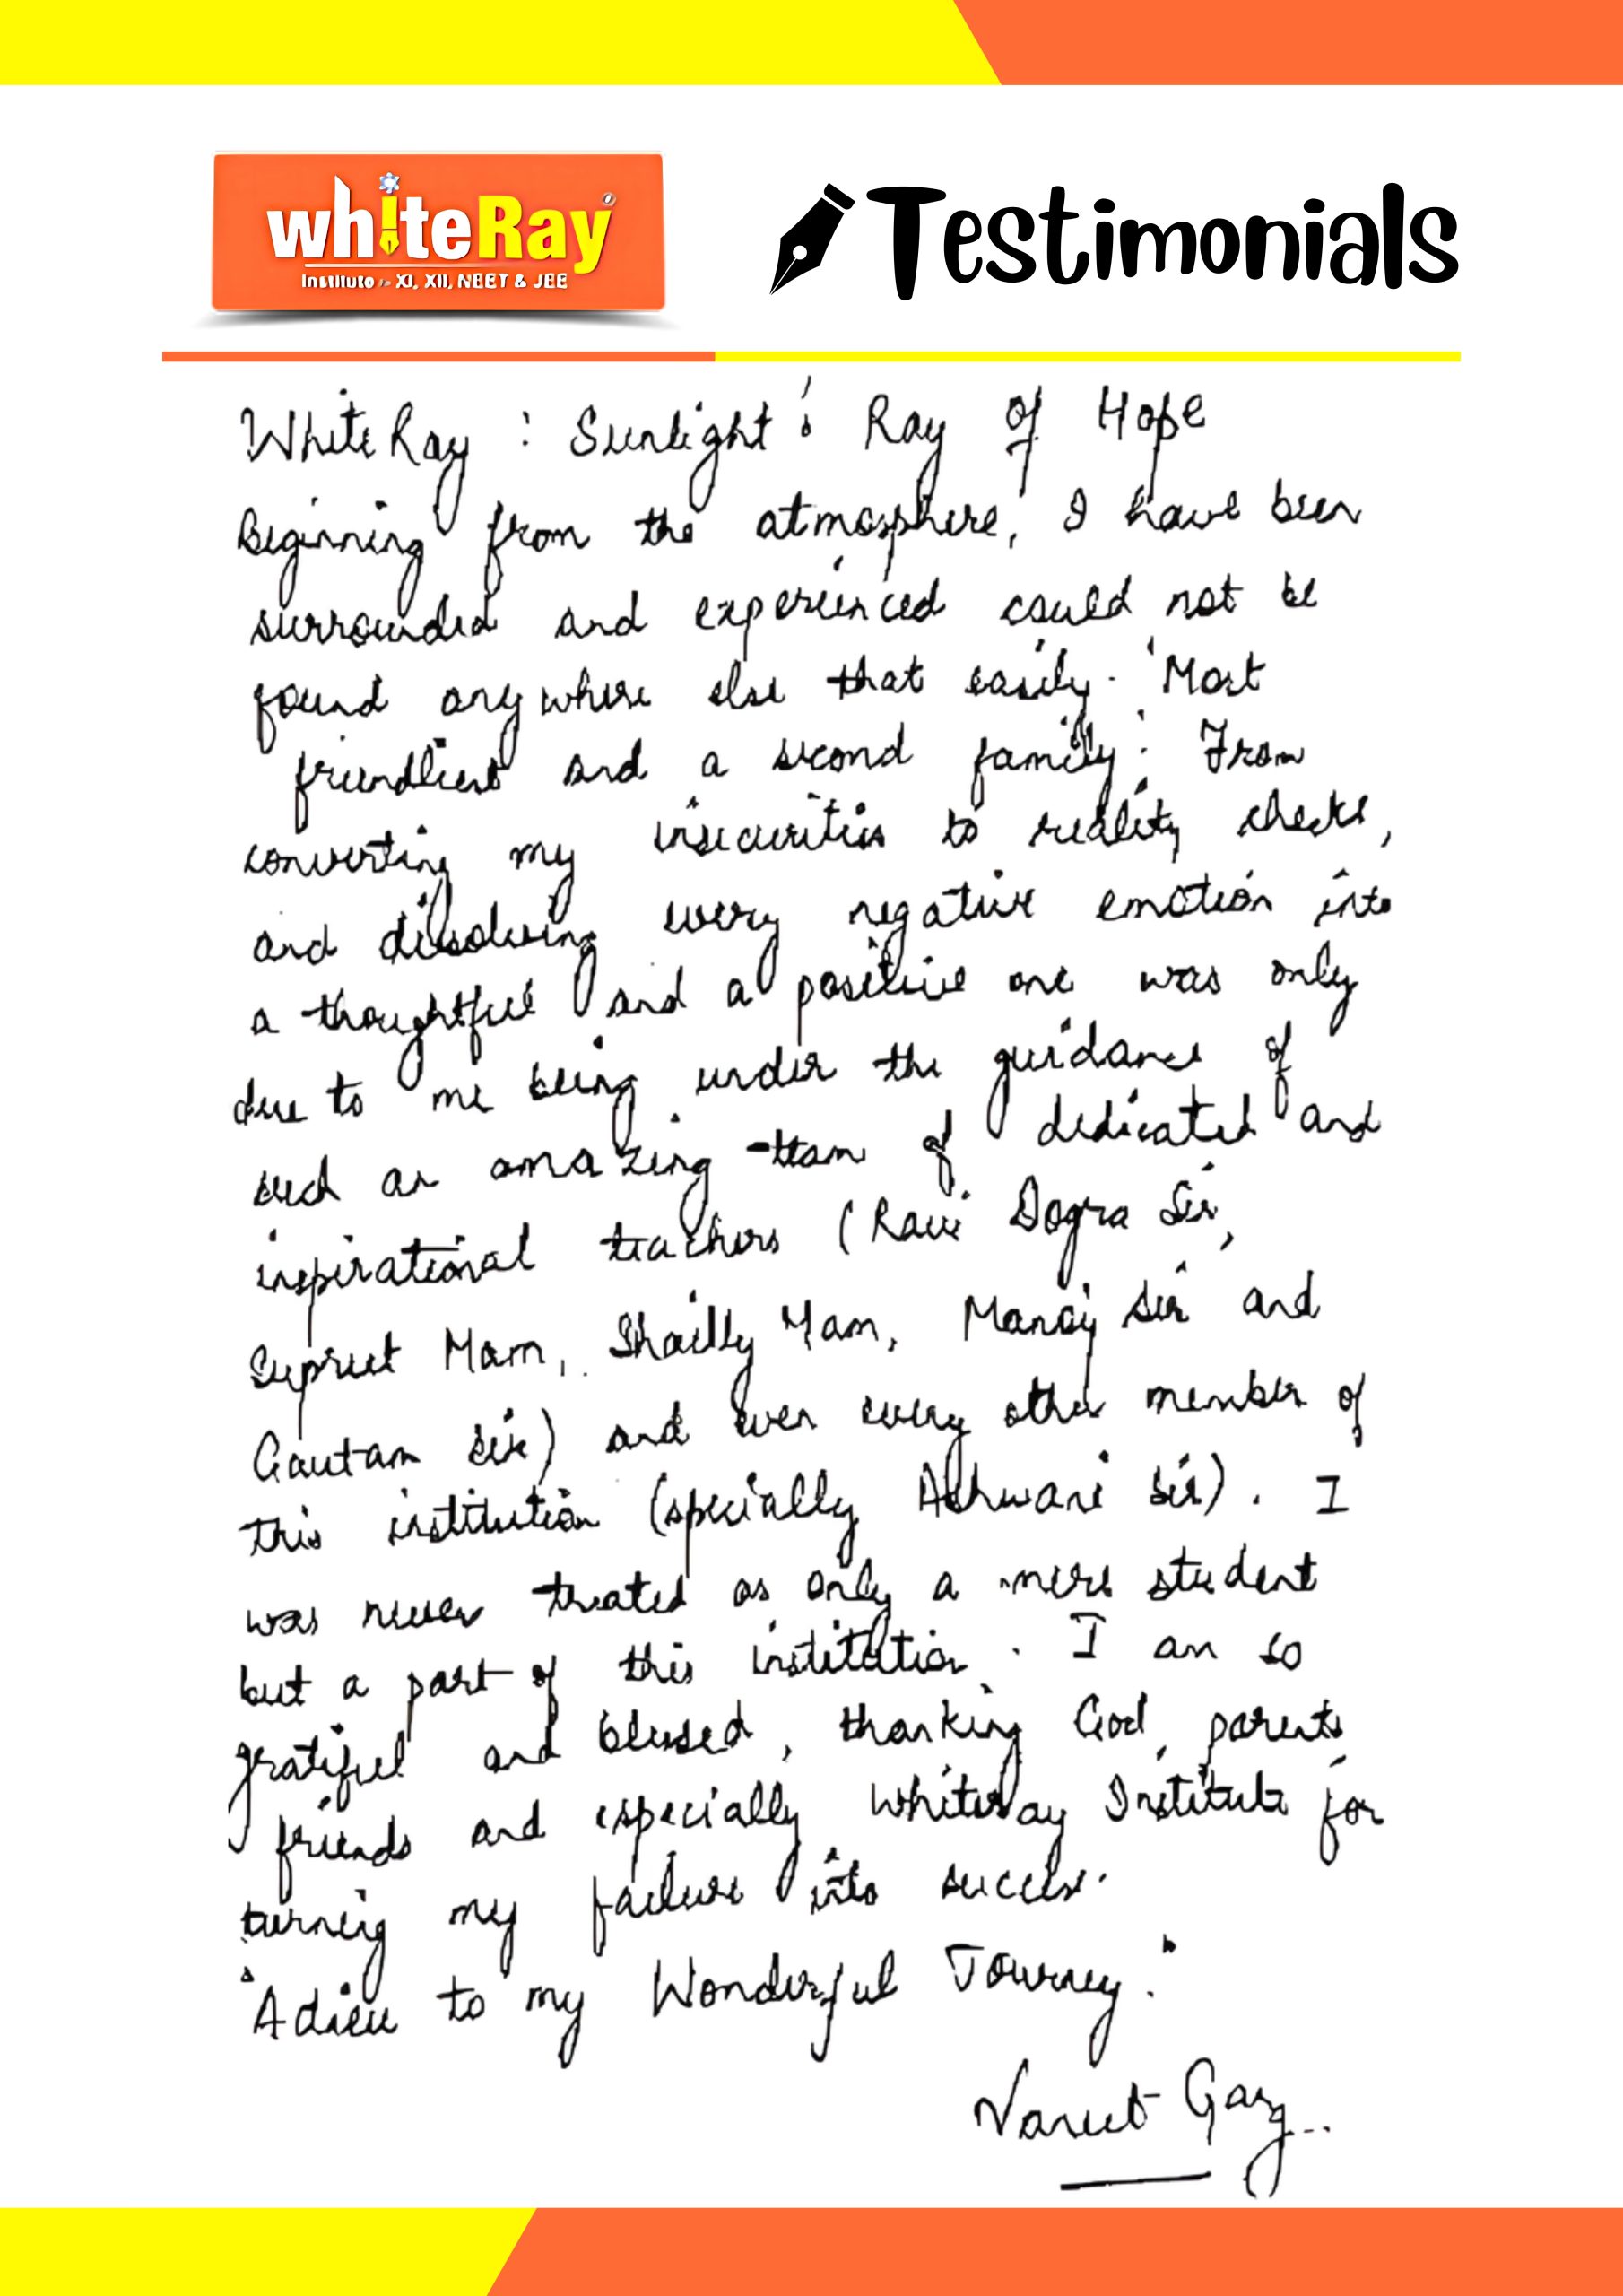 whiteRay
Institute - XI, XII, NEET & JEE
Testimonials
WhiteRay : Sunlight : Ray of Hope
Beginning from the atmosphere, I have been
surrounded and experienced could not be
found anywhere else that easily. 'Most
friendliest and a second family.' From
converting my insecurities to reality checks,
and dissolving every negative emotion into
a thoughtful and a positive one was only
due to me being under the guidance of
such an amazing team of dedicated and
inspirational teachers (Ravi Dogra Sir,
Supreet Mam, Shailly Mam, Manoj Sir and
Gautam Sir) and even every other member of
this institution (specially Ashwani Sir). I
was never treated as only a mere student
but a part of this institution. I am so
gratiful and blessed, thanking God, parents
friends and especially WhiteRay Institute for
turning my failure into success.
"Adieu to my Wonderful Journey."
Garg